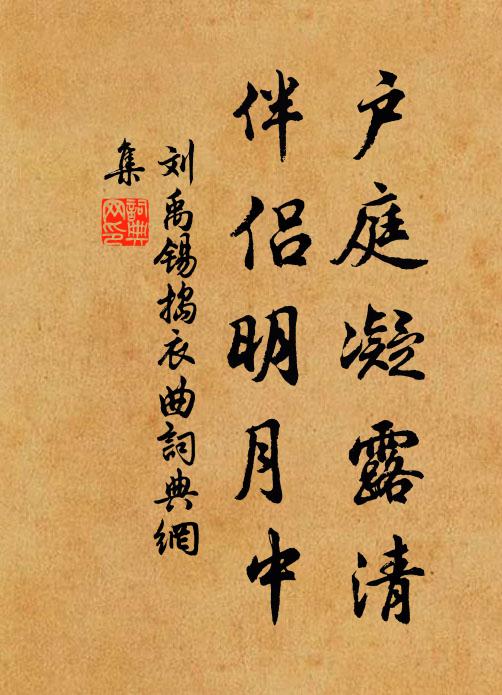 户庭凝露清
伴侣明月中
刘禹锡捣衣曲词典網
集
詞典
网印